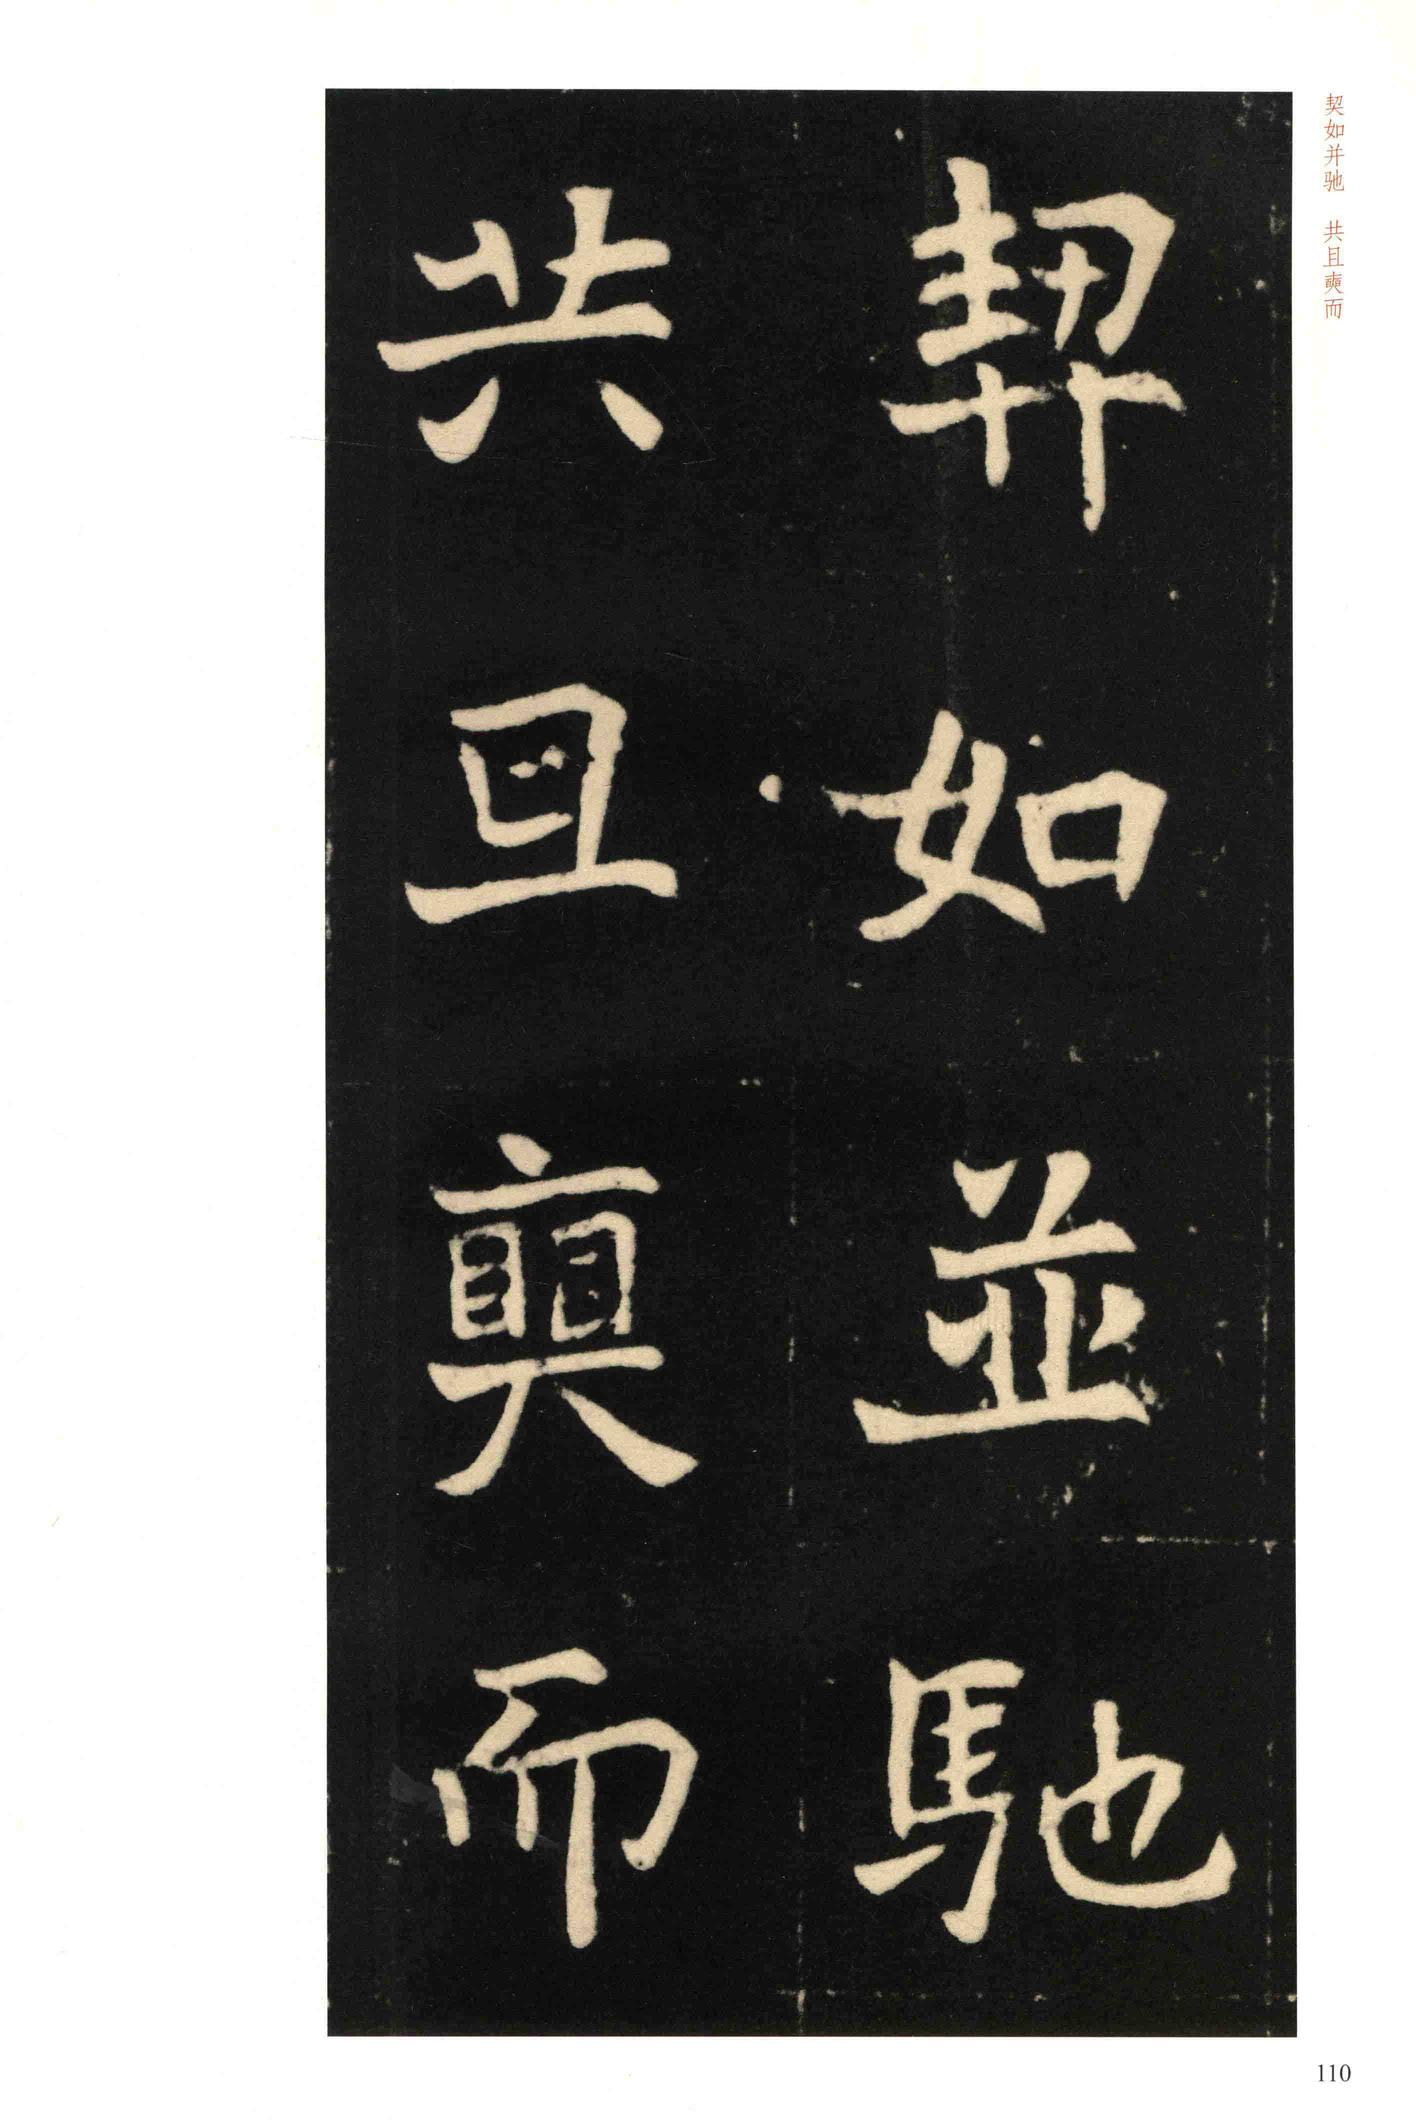 契如并驰　共且奭而
契如並馳
共且奭而
110